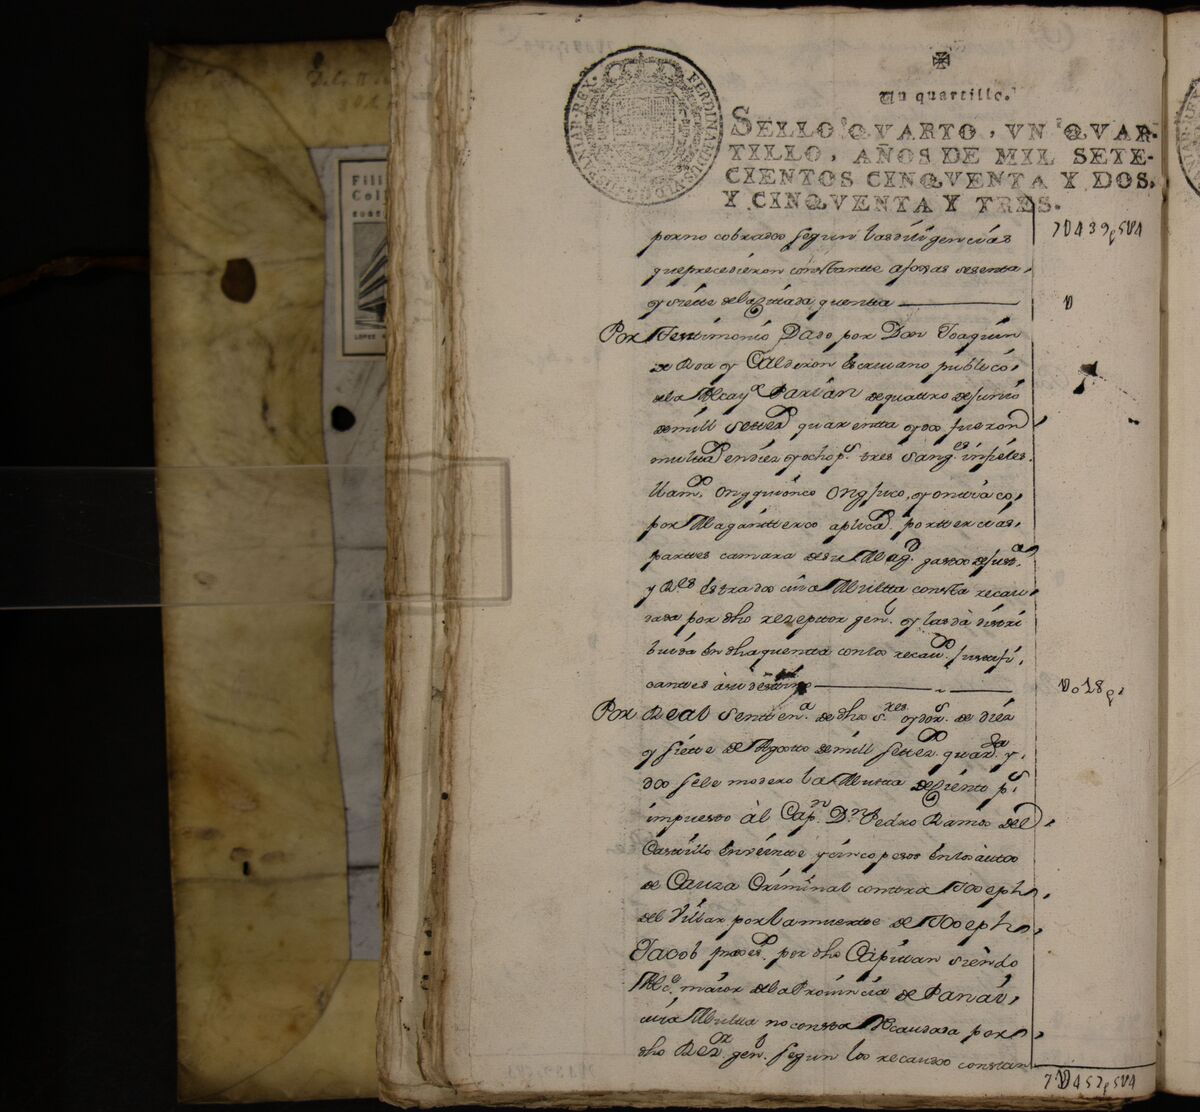 FERDINANDUS VI D G HISPANIAR REX
Un quartillo.
SELLO QVARTO, VN QVAR-
TILLO, AÑOS DE MIL SETE-
CIENTOS CINQVENTA Y DOS,
Y CINQVENTA Y TRES.
por no cobrados segun las diligencias
que precedieron constantte afoxas sesenta,
y siette de la zittada quentta
Por Testimonio Dado por Don Joaquin
de Roa y Calderon Escrivano publico,
de la Alcayª Parian de quattro de Junio
de mill Settezº quarentta y dos fueron
multtados en diez y ocho pˢ. tres Sangˡᵉˢ infieles.
llamᵒˢ
por Magantterco aplicaᵒˢ por tterzias,
parttes camara de su Magᵈ. gasttos de Justª
y Rˡᵉˢ Estrados cuia Multta consta recau
dada por dho rezepttor genˡ. y las dà distri
buida En dha quentta con los recauᵒˢ. Justifi,
cantes à su destino
Por Real Senttenª. de dhoˢ Sʳᵉˢ. oydorˢ. de diez
y siette de Agosto de mill settezº quarᵗᵃ y
dos se le modero la Multta de Ziento pˢ.
impuesto àl Capⁿ Dⁿ Pedro Ramos del
Castillo En veinte y cinco pesos En los autos
de Cauza Criminal contra Joseph
del Villar por la muerte de Joseph
Jacob por dho Capitan siendo
Alcᵉ. maior de la Provincia de Panay,
cuia Multta no consta Recaudada por
dho Rezʳ genˡ. segun los recaudos constan
018p.